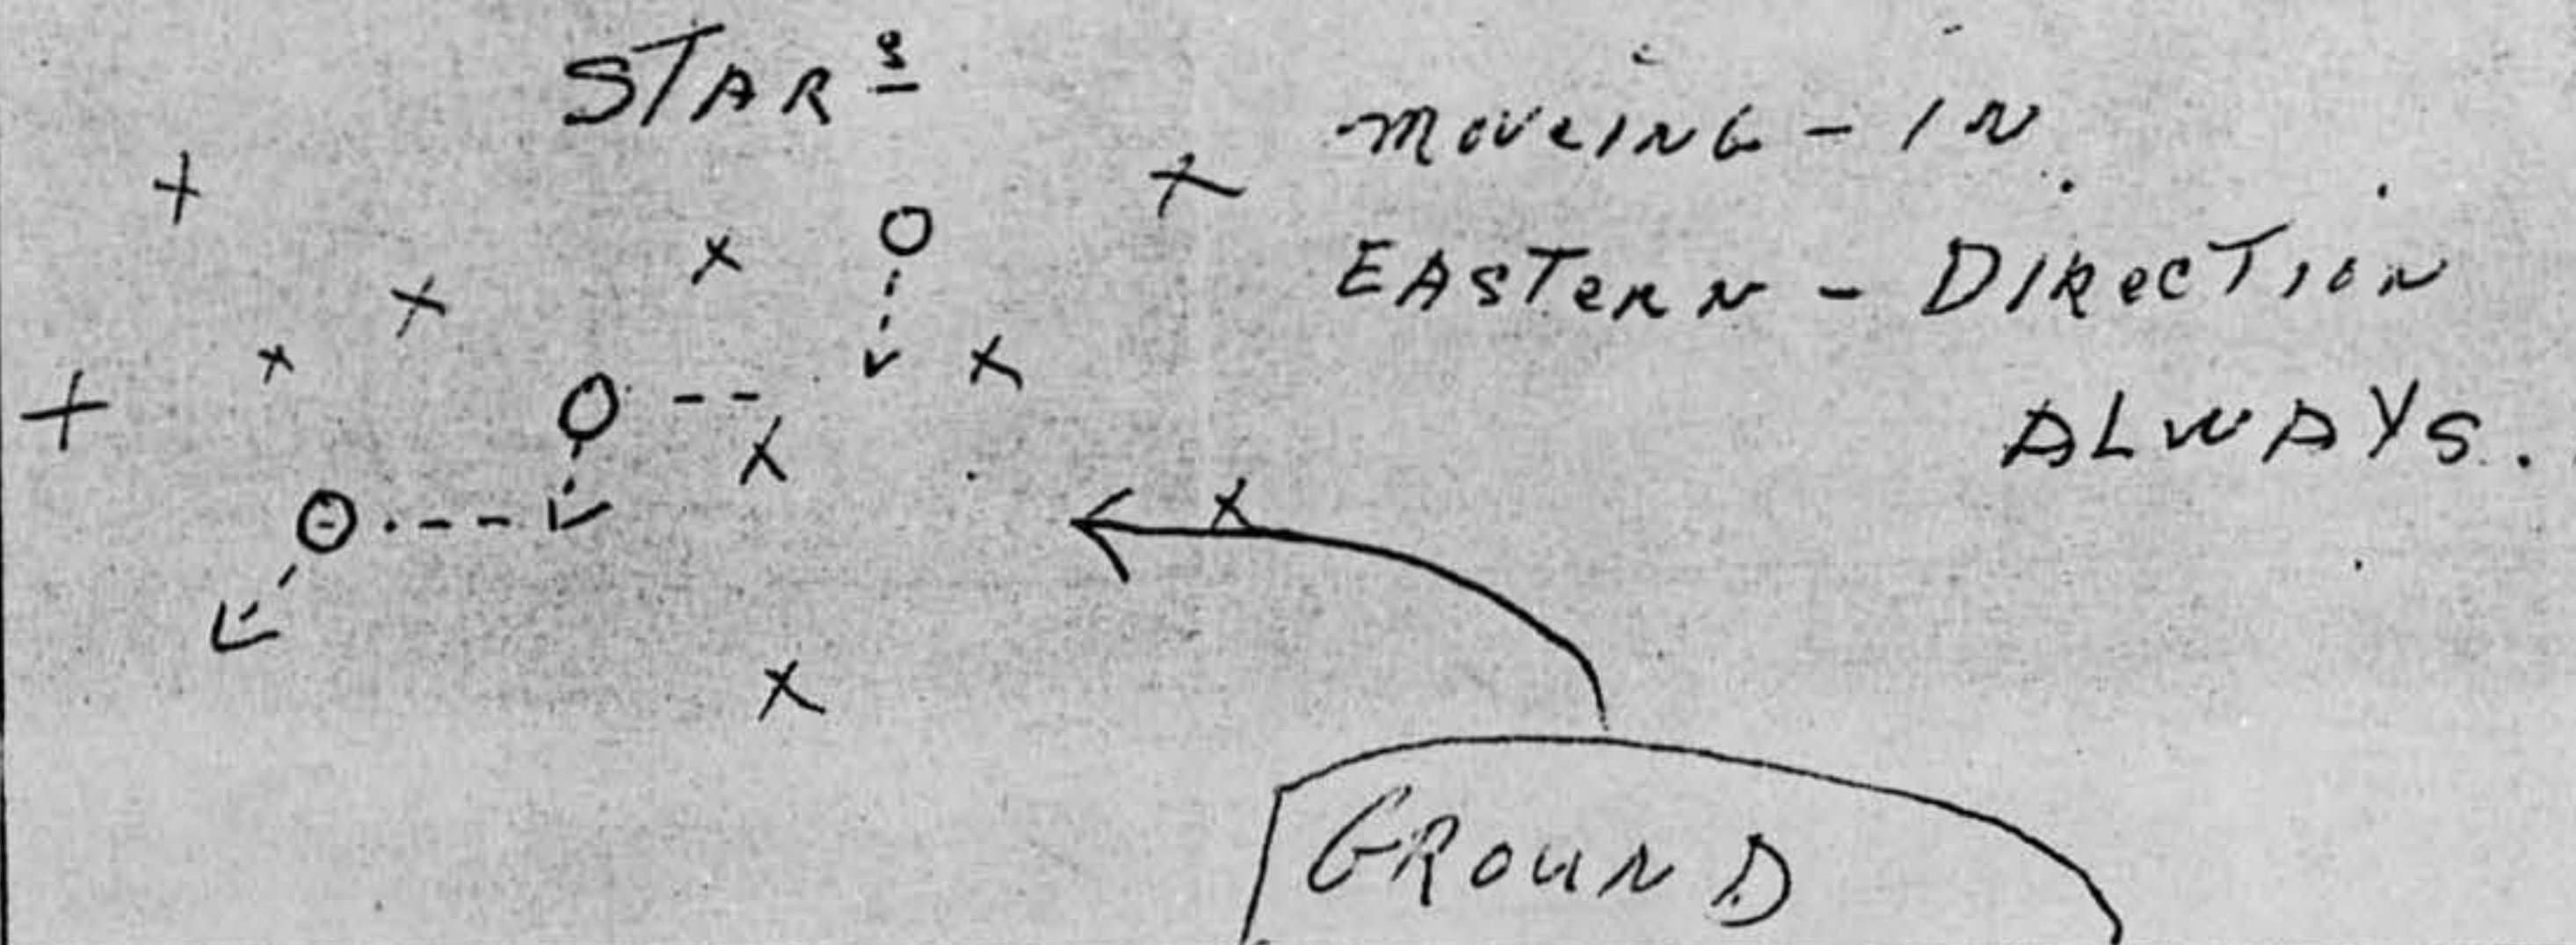 STARS
MOVEING - IN
EASTERN - DIRECTION
ALWAYS.
GROUND